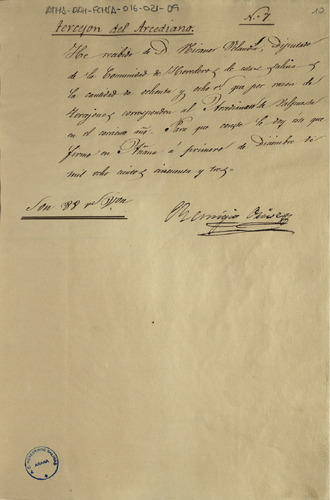 ATHA-DAH-FCHSA-016-021-09
Nº 7
10
Tercejon del Arcediano.
He recibido de D. Nicanor Velando, diputado
de la Comunidad de Herederos de estas salinas
la cantidad de ochenta y ocho rs. que por razon de
terzejones corresponden al Arcedianato de Valpuesta
en el corriente año. Para que conste lo doy este que
firmo en Añana á primero de Diciembre de
mil ocho cientos cincuenta y tres.
Son 88 rs. Von
Remigio
ARABA